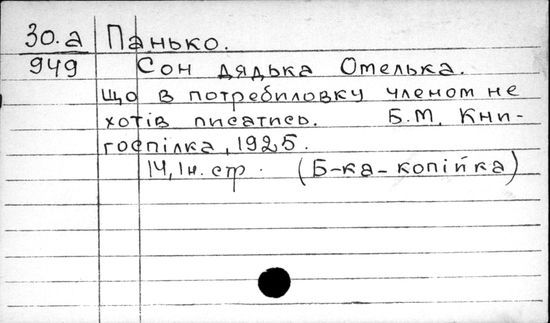 30.а Панько.
949 Сон дядька Омелька.
Що в потребиловку членом не
хотів писатись. Б.М. Кни-
госпілка, 1925.
14, 1н. стр. (Б-ка-копійка)